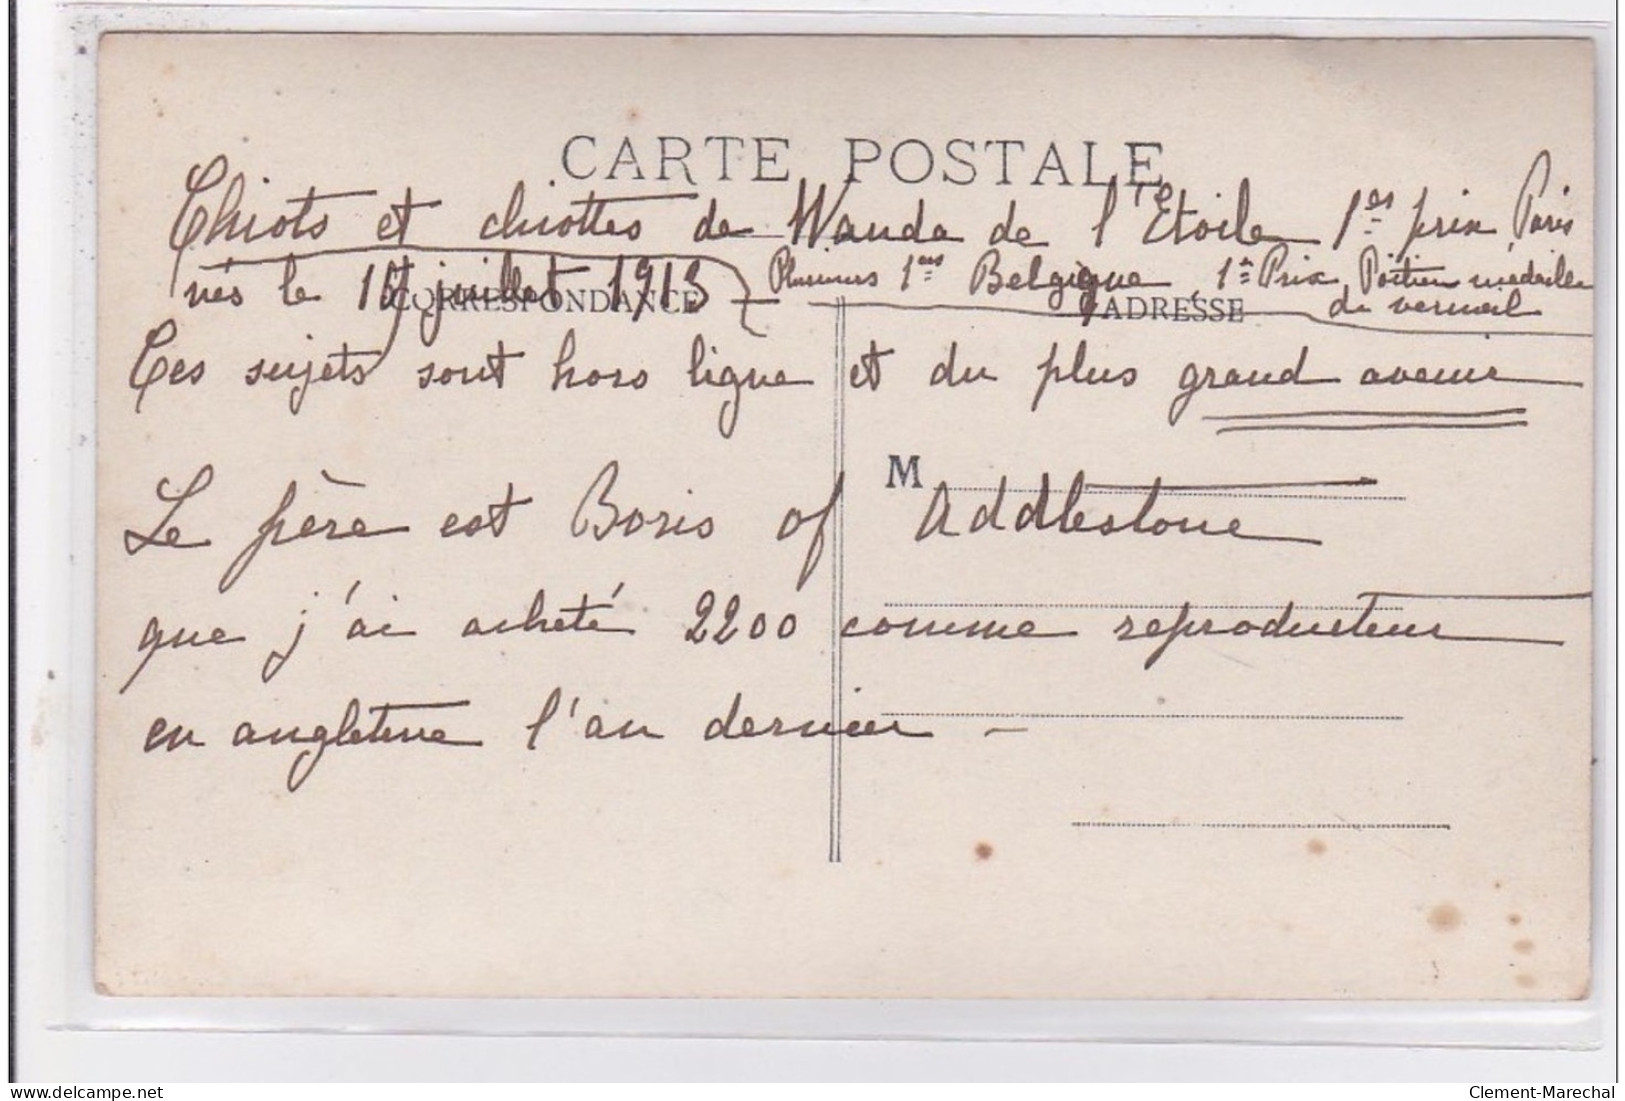 CARTE POSTALE
Chiots et chiottes de Wanda de l'Etoile 1ers prix Paris
nés le 15 juillet 1913 Plusieurs 1ers Belgique, 1er Prix Poitiers médaille
de vermeil
CORRESPONDANCE
ADRESSE
Ces sujets sont hors ligne et du plus grand avenir
M
Le père est Boris of Addlestone
que j'ai acheté 2200 comme reproducteur
en angleterre l'an dernier –
delcampe.net
Clement-Marechal